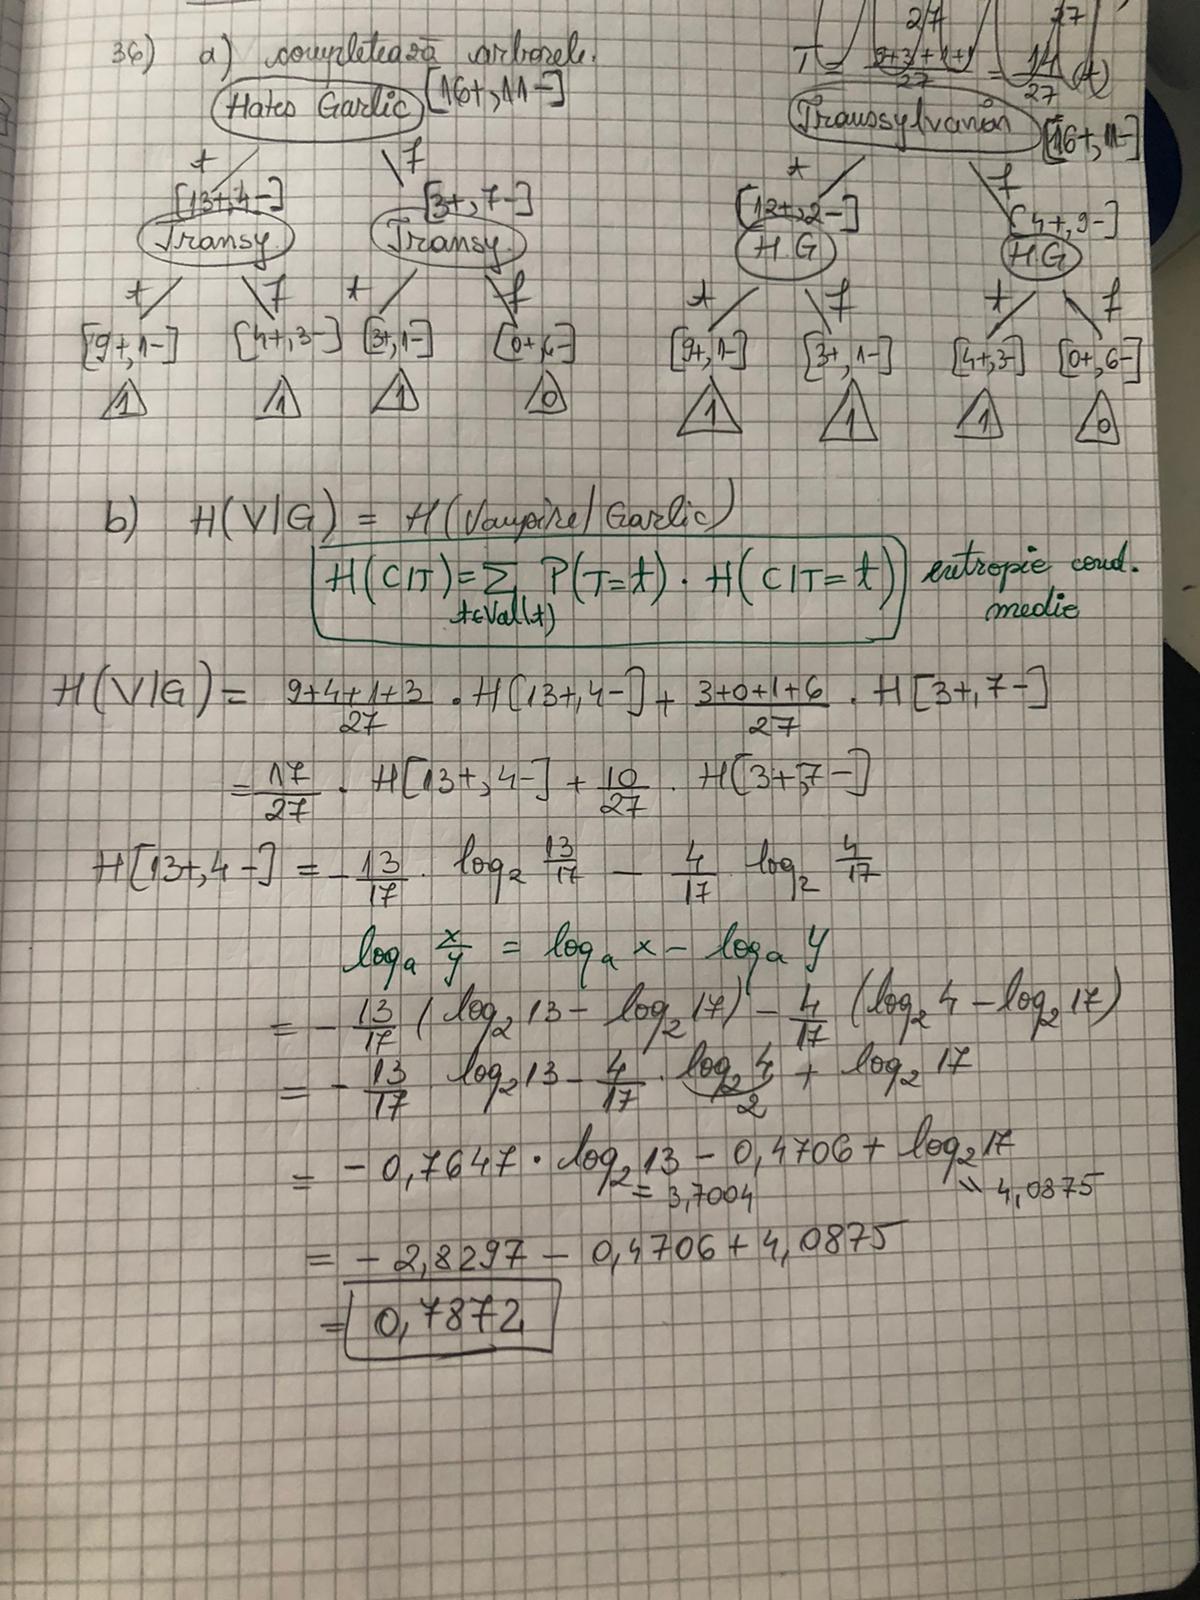 36) a) completează arborele.
27 27
T 9+3+1+1 / 27 = 14/27 (t)
Hates Garlic [16+, 11-]
t f
[13+, 4-] [3+, 7-]
Transy. Transy.
t f t f
[9+, 1-] [4+, 3-] [3+, 1-] [0+, 6-]
1 1 1 0
Transsylvanian [16+, 11-]
t f
[12+, 2-] [4+, 9-]
H.G H.G
t f t f
[9+, 1-] [3+, 1-] [4+, 3-] [0+, 6-]
1 1 1 0
b) H(V|G) = H(Vampire/Garlic)
H(C|T) = Σ t∈Val(t) P(T=t) · H(C|T=t) entropie cond.
medie
H(V|G) = 9+4+1+3/27 · H[13+, 4-] + 3+0+1+6/27 · H[3+, 7-]
= 17/27 · H[13+, 4-] + 10/27 · H[3+, 7-]
H[13+, 4-] = - 13/17 · log₂ 13/17 - 4/17 log₂ 4/17
logₐ x/y = logₐ x - logₐ y
= - 13/17 (log₂ 13 - log₂ 17) - 4/17 (log₂ 4 - log₂ 17)
= - 13/17 log₂ 13 - 4/17 · log₂ 4 + log₂ 17
2
= - 0,7647 · log₂ 13 - 0,4706 + log₂ 17
= 3,7004 = 4,0875
= - 2,8297 - 0,4706 + 4,0875
= 0,7872